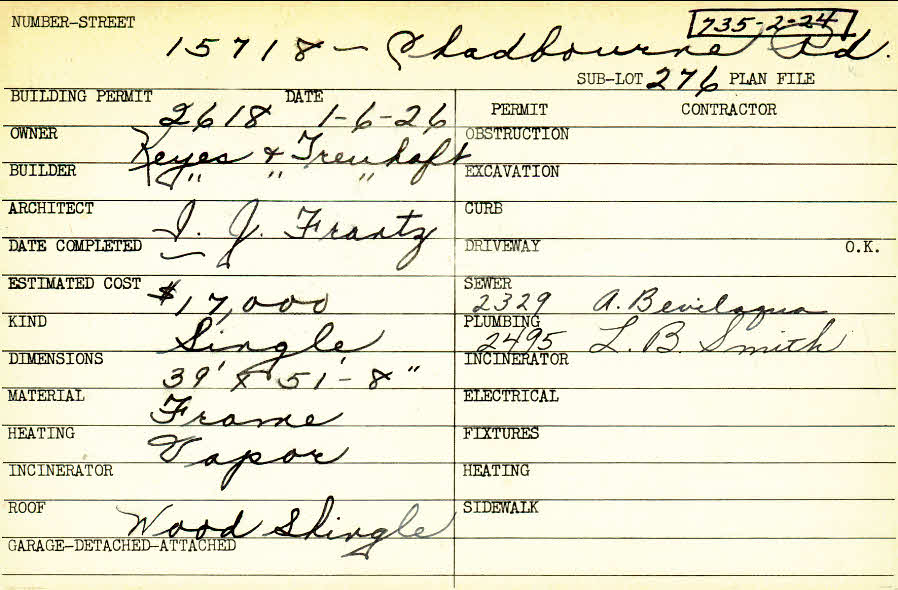 NUMBER-STREET
735-2-24
15718 - Chadbourne Rd.
SUB-LOT 276 PLAN FILE
BUILDING PERMIT DATE
2618 1-6-26
PERMIT CONTRACTOR
OWNER Keyes & Treuhaft
BUILDER " " "
ARCHITECT I. J. Frantz
DATE COMPLETED —
ESTIMATED COST $17,000
KIND Single
DIMENSIONS 39' x 51'-8"
MATERIAL Frame
HEATING Vapor
INCINERATOR
ROOF Wood Shingle
GARAGE-DETACHED-ATTACHED
OBSTRUCTION
EXCAVATION
CURB
DRIVEWAY O.K.
SEWER
2329 A. Bevilaqua
PLUMBING
2495 L. B. Smith
INCINERATOR
ELECTRICAL
FIXTURES
HEATING
SIDEWALK